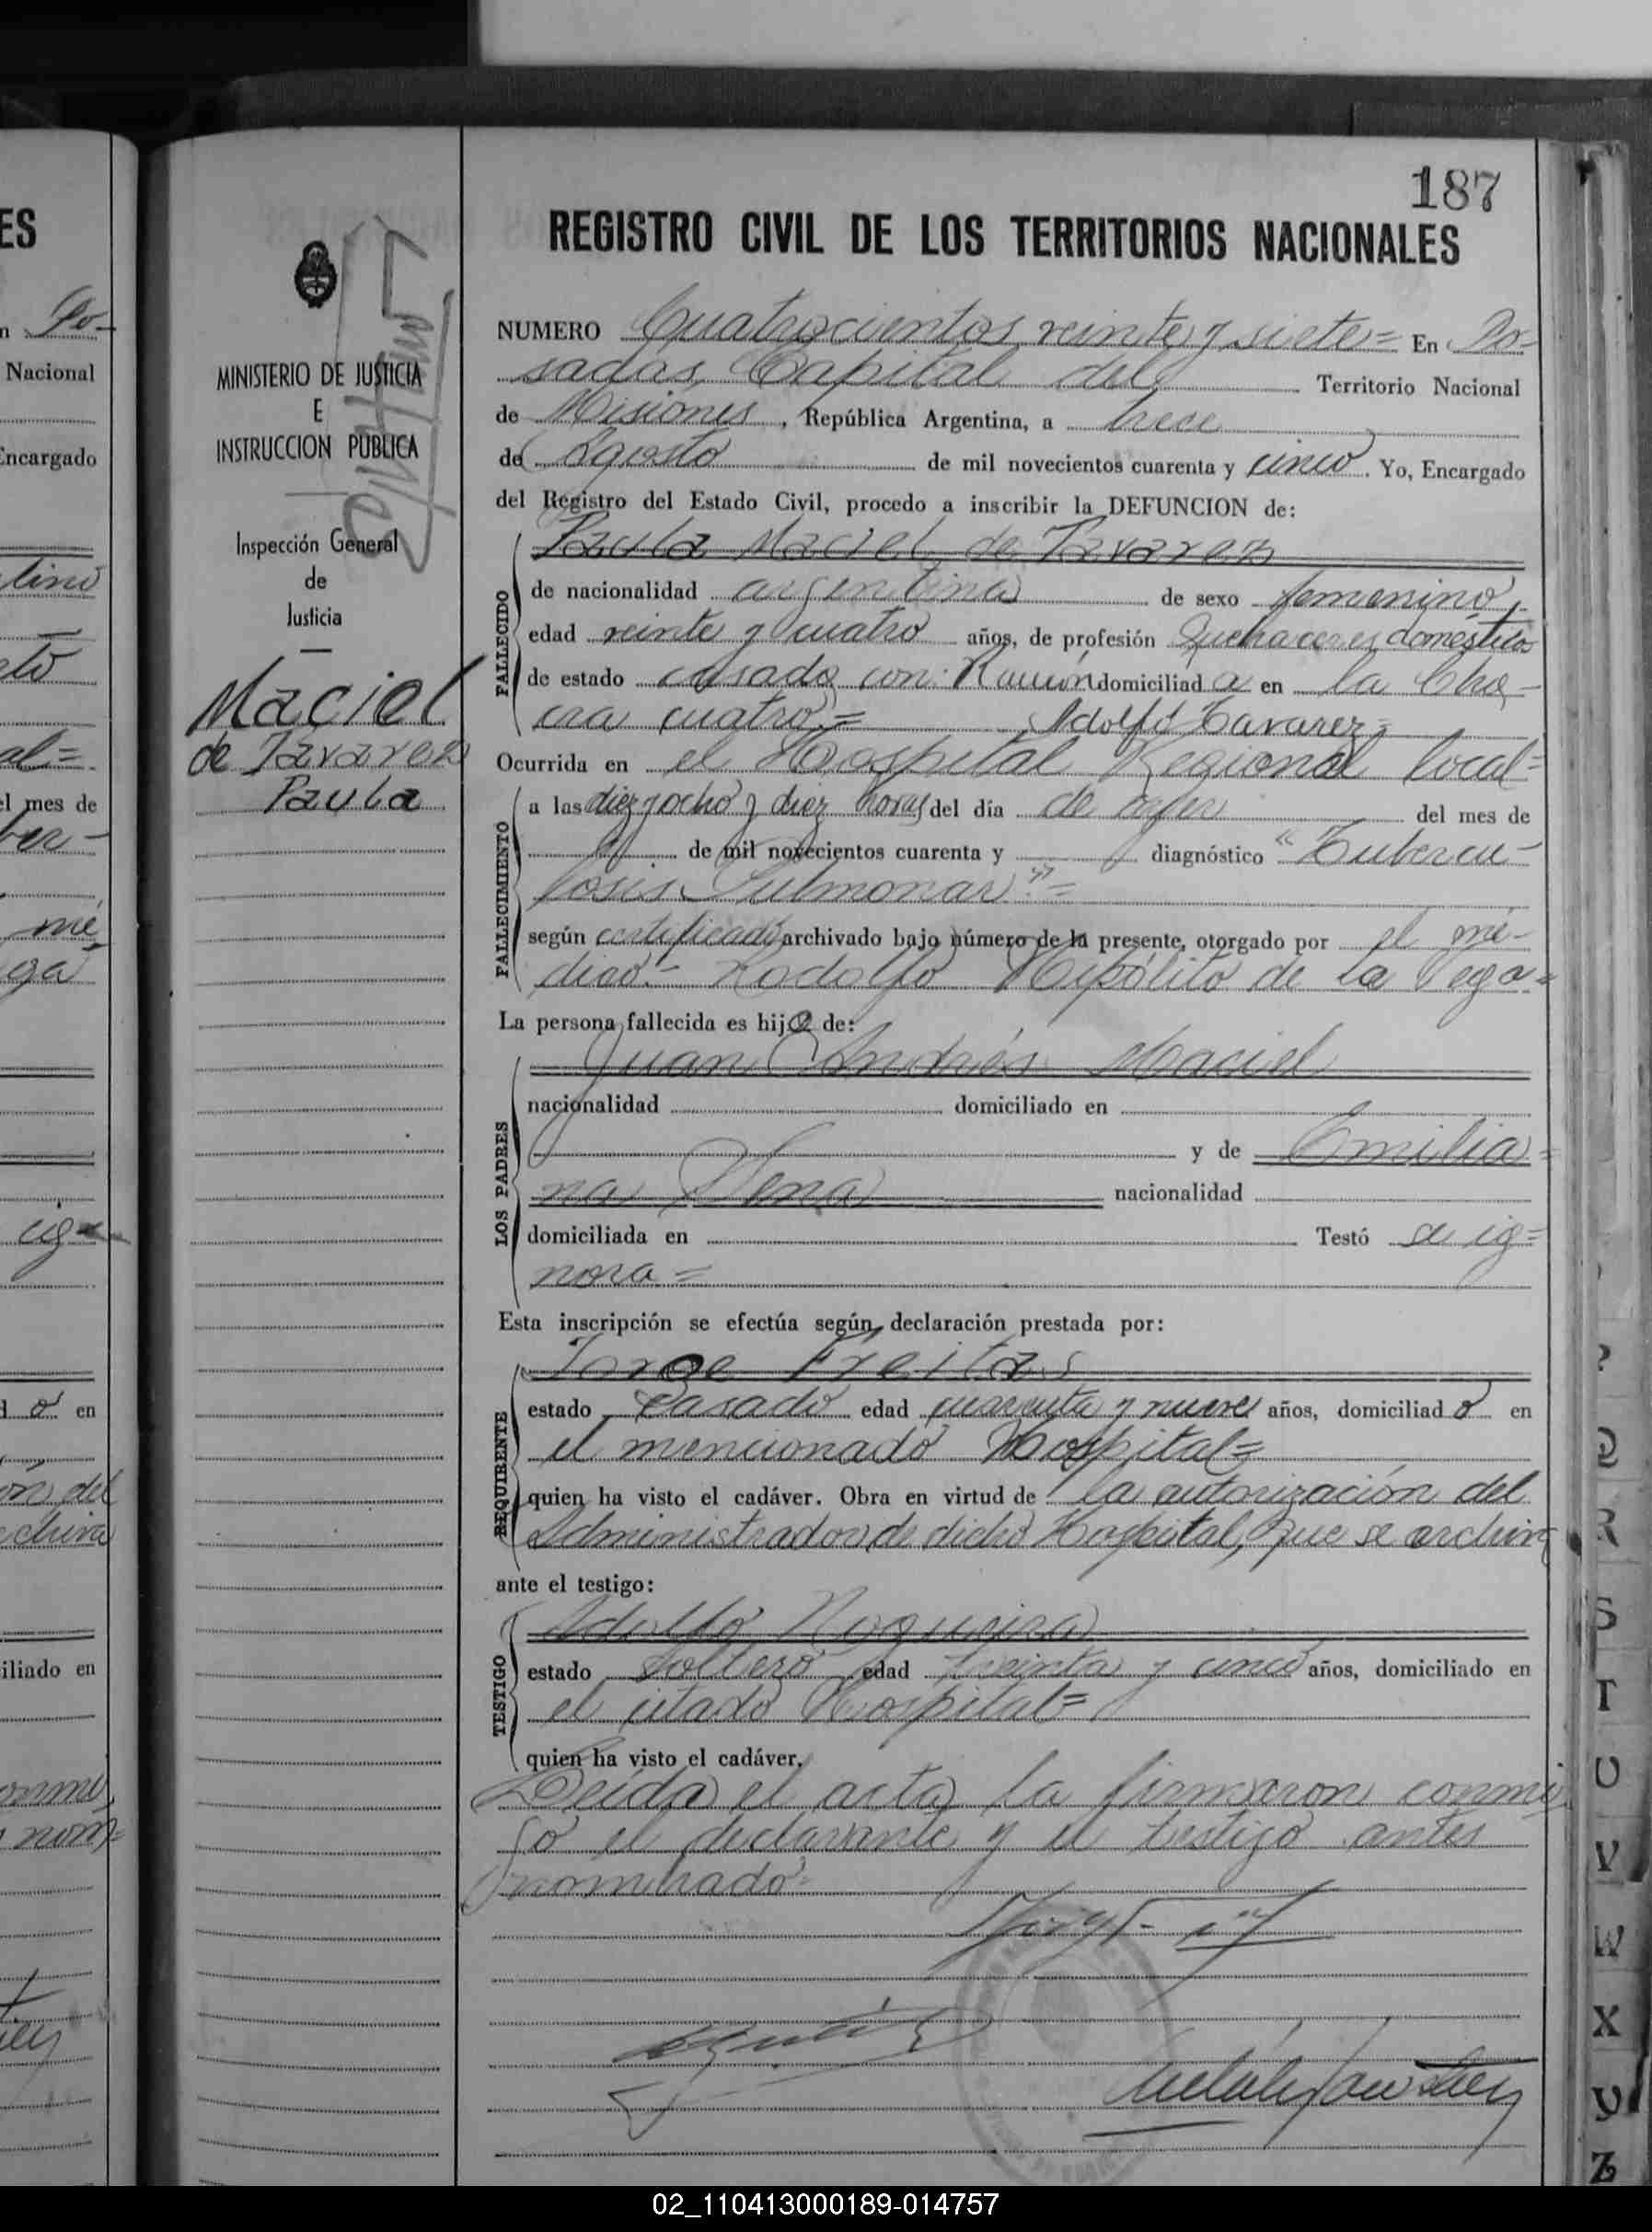 187
REGISTRO CIVIL DE LOS TERRITORIOS NACIONALES
MINISTERIO DE JUSTICIA
E
INSTRUCCION PUBLICA
Inspección General
de
Justicia
Maciel
de Tavarez
Paula
NUMERO Cuatrocientos veinte y siete= En Po-
sadas, Capital del Territorio Nacional
de Misiones, República Argentina, a trece
de Agosto de mil novecientos cuarenta y cinco. Yo, Encargado
del Registro del Estado Civil, procedo a inscribir la DEFUNCION de:
Paula Maciel de Tavarez
FALLECIDO
de nacionalidad argentina de sexo femenino,
edad veinte y cuatro años, de profesión Quehaceres domésticos
de estado casada con: Ramón domiciliad a en la Cha-
cra cuatro.= Adolfo Tavarez=
Ocurrida en el Hospital Regional local=
FALLECIMIENTO
a las diez y ocho y diez horas del día de ayer del mes de
de mil novecientos cuarenta y diagnóstico "Tubercu-
losis Pulmonar".=
según certificado archivado bajo número de la presente, otorgado por el mé-
dico.- Rodolfo Hipólito de la Vega=
La persona fallecida es hija de:
LOS PADRES
Juan Andrés Maciel
nacionalidad domiciliado en
y de Emilia=
na Sena nacionalidad
domiciliada en Testó se ig=
nora=
Esta inscripción se efectúa según declaración prestada por:
REQUIRENTE
Jorge Freitas
estado casado edad cuarenta y nueve años, domiciliad o en
el mencionado Hospital=
quien ha visto el cadáver. Obra en virtud de la autorización del
Administrador de dicho Hospital, que se archiva
ante el testigo:
TESTIGO
Adolfo Nogueira
estado Soltero edad treinta y cinco años, domiciliado en
el citado Hospital=
quien ha visto el cadáver.
Leída el acta la firmaron conmi
go el declarante y el testigo antes
nombrado=
ES
Nacional
Encargado
el mes de
en
iliado en
R
S
T
U
V
W
X
Y
Z
02_110413000189-014757